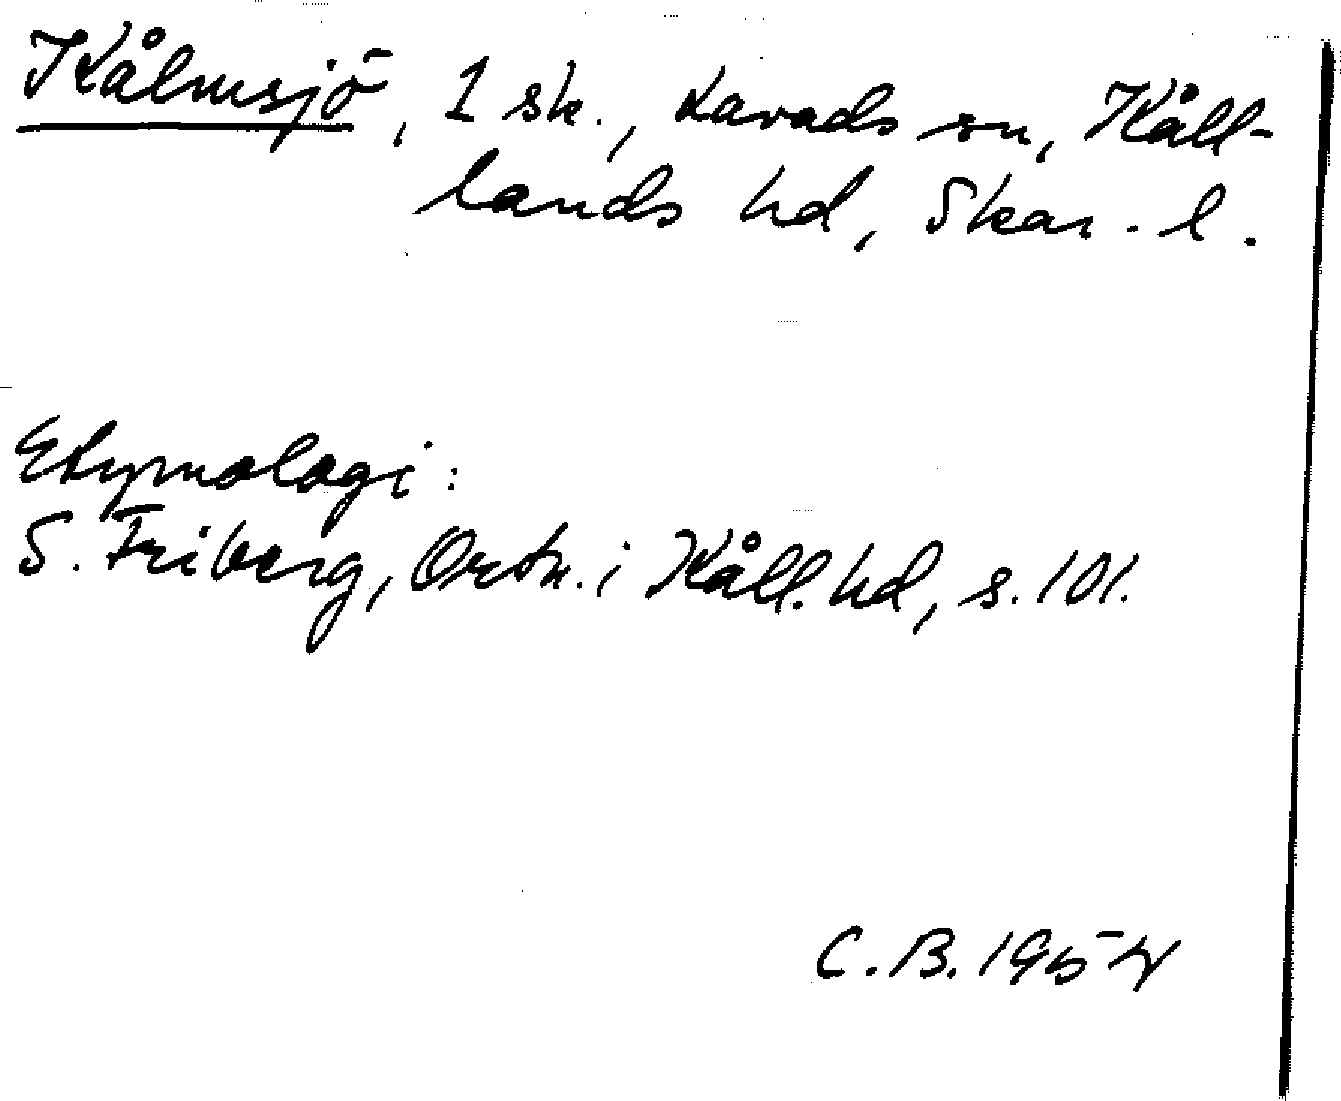 Kålmsjö, 1 sk., Lavads sn, Kåll-
lands hd, Skar. l.
Etymologi:
S. Friberg, Ortn. i Kåll. hd, s. 101.
C. B. 1954